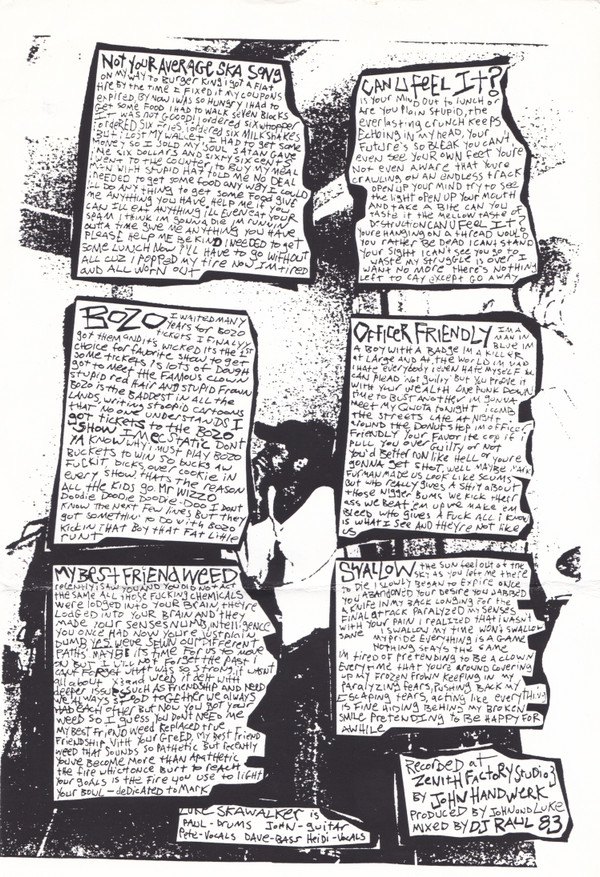 NOT YOUR AVERAGE SKA SONG
ON MY WAY TO BURGER KING I GOT A FLAT
TIRE BY THE TIME I FIXED IT MY COUPONS
EXPIRED, BY NOW I WAS SO HUNGRY I HAD TO
GET SOME FOOD I HAD TO WALK SEVEN BLOCKS
IT WAS NOT GOOD! I ORDERED SIX WHOPPERS
ORDERED SIX FRIES, I ORDERED SIX MILKSHAKES
BUT I LOST MY WALLET I HAD TO GET SOME
MONEY SO I SOLD MY SOUL. SATAN GAVE
ME SIX DOLLARS AND SIXTY SIX CENTS
WENT TO THE COUNTER TO BUY MY MEAL
MAN WITH STUPID HAT TOLD ME NO DEAL
NEEDED TO GET SOME FOOD ANY WAY I COULD
I'LL DO ANYTHING TO GET SOME FOOD GIVE
ME ANYTHING YOU HAVE, HELP ME IF YOU
CAN I'LL EAT ANYTHING I'LL EVEN EAT YOUR
SPAM I THINK I'M GONNA DIE I'M RUNNING
OUTA TIME GIVE ME ANYTHING YOU HAVE
PLEASE HELP ME BE KIND I NEEDED TO GET
SOME LUNCH NOW I'LL HAVE TO GO WITHOUT
ALL CUZ I POPPED MY TIRE NOW I'M TIRED
AND ALL WORN OUT
CAN U FEEL IT?
IS YOUR MIND OUT TO LUNCH OR
ARE YOU PLAIN STUPID, THE
EVERLASTING CRUNCH KEEPS
ECHOING IN MY HEAD, YOUR
FUTURE'S SO BLEAK YOU CAN'T
EVEN SEE YOUR OWN FEET YOU'RE
NOT EVEN AWARE THAT YOU'RE
CRAWLING ON AN ENDLESS TRACK
OPEN UP YOUR MIND TRY TO SEE
THE LIGHT OPEN UP YOUR MOUTH
AND TAKE A BITE CAN YOU
TASTE IT THE MELLOW TASTE OF
DESTRUCTION CAN U FEEL IT?
YOUR HANGING ON A THREAD WOULD
YOU RATHER BE DEAD I CAN'T STAND
YOUR SIGHT I CAN'T SEE YOU GO TO
WASTE MY STRUGGLE IS OVER I
WANT NO MORE THERE'S NOTHING
LEFT TO SAY EXCEPT GO AWAY
BOZO I WAITED MANY
YEARS FOR BOZO
TICKETS I FINALYY
GOT THEM AND ITS WICKED ITS THE 1ST
CHOICE FOR FAVORITE SHOW TO GET
SOME TICKETS IS LOTS OF DOUGH
GOT TO MEET THE FAMOUS CLOWN
STUPID RED HAIR AND STUPID FROWN
BOZO IS THE BADDEST IN ALL THE
LANDS, WRITING STOOPID CARTOONS
THAT NO ONE UNDERSTANDS I
GOT TICKETS TO THE BOZO
SHOW I'M ECSTATIC DONT
YA KNOW WHY MUST PLAY BOZO
BUCKETS TO WIN 50 BUCKS AW
FUCKIT DICKS OVER COOKIE IN
EVERY SHOW, THATS THE REASON
ALL THE KIDS GO MR WIZZO
DOODIE DOODIE DOODIE-DOO I DONT
KNOW THE NEXT FEW LINES BUT THEY
GOT SOMETHIN TO DO WITH BOZO
KICKIN THAT BOY THAT FAT LITTLE
RUNT
OFFICER FRIENDLY I'M A
MAN IN
BLUE IM
A BOY WITH A BADGE IM A KILLER
AT LARGE AND AT THE WORLD IM MAD
I HATE EVERYBODY I EVEN HATE MYSELF U
CAN PLEAD NOT GUILTY BUT YOU PROVE IT
WITH YOUR WEALTH ONE PUNK DOWN
TIME TO BUST ANOTHER IM GUNNA
MEET MY QUOTA TONIGHT I COMB
THE STREETS LATE AT NIGHT
AROUND THE DONUT SHOP IM OFFICER
FRIENDLY YOUR FAVORITE COP IF I
PULL YOU OVER GUILTY OR NOT
YOU'D BETTER RUN LIKE HELL OR YOU'RE
GONNA GET SHOT. WELL MAYBE MARK
FURMAN MADE US LOOK LIKE SCUMS
BUT WHO REALLY GIVES A SHIT ABOUT
THOSE NIGGER BUMS WE KICK THEIR
ASS WE BEAT 'EM UP WE MAKE EM
BLEED WHO GIVES A FUCK ALL I KNOW
IS WHAT I SEE AND THEY'RE NOT LIKE
US
MY BEST FRIEND WEED
RECENTLY I SAW YOU AND YOU DID NOT ACT
THE SAME ALL THOSE FUCKING CHEMICALS
WERE LODGED INTO YOUR BRAIN, THEY'RE
LODGED INTO YOUR BRAIN AND THEY
MADE YOUR SENSES NUMB, INTELLIGENCE
YOU ONCE HAD NOW YOU'RE JUST PLAIN
DUMB YES WE'VE SPUN OUR DIFFERENT
PATHS MAYBE ITS TIME FOR US TO MOVE
ON BUT I WILL NOT FORGET THE PAST I
CAN'T FORGET WHAT WAS SO STRONG IT WASN'T
ALL ABOUT XXX AND WEED IT DELT WITH
DEEPER ISSUES SUCH AS FRIENDSHIP AND NEED
WE ALWAYS STOOD TOGETHER WE ALWAYS
HAD EACH OTHER BUT NOW YOU GOT YOUR
WEED SO I GUESS YOU DONT NEED ME
MY BEST FRIEND WEED REPLACED TRUE
FRIENDSHIP WITH YOUR GREED, MY BEST FRIEND
WEED THAT SOUNDS SO PATHETIC BUT RECENTLY
YOU'VE BECOME MORE THAN APATHETIC
THE FIRE WHICH ONCE BURT TO REACH
YOUR GOALS IS THE FIRE YOU USE TO LIGHT
YOUR BOWL - DEDICATED TO MARK
SWALLOW THE SUN FELL OUT OF THE
SKY AS YOU LEFT ME THERE
TO DIE I SLOWLY BEGAN TO EXPIRE ONCE
YOU ABANDONED YOUR DESIRE YOU JABBED
A KNIFE IN MY BACK LOADING FOR THE
FINAL ATTACK PARALYZED MY SENSES
WITH YOUR PAIN I REALIZED THAT I WASN'T
SANE I SWALLOW MY TIME WON'T SWALLOW
MY PRIDE EVERYTHING IS A GAME
NOTHING STAYS THE SAME
IM TIRED OF PRETENDING TO BE A CLOWN
EVERYTIME THAT YOU'RE AROUND COVERING
UP MY FROZEN FROWN KEEPING IN MY
PARALYZING FEARS, PUSHING BACK MY
ESCAPING TEARS, ACTING LIKE EVERYTHING
IS FINE HIDING BEHIND MY BROKEN
SMILE PRETENDING TO BE HAPPY FOR
AWHILE
RECORDED AT
ZENITH FACTORY STUDIOZ
BY JOHN HANDWERK
PRODUCED BY JOHN AND LUKE
MIXED BY DJ RAUL 83
LUKE SKAWALKER IS
PAUL-DRUMS JOHN-GUITAR
PETE-VOCALS DAVE-BASS HEIDI-VOCALS